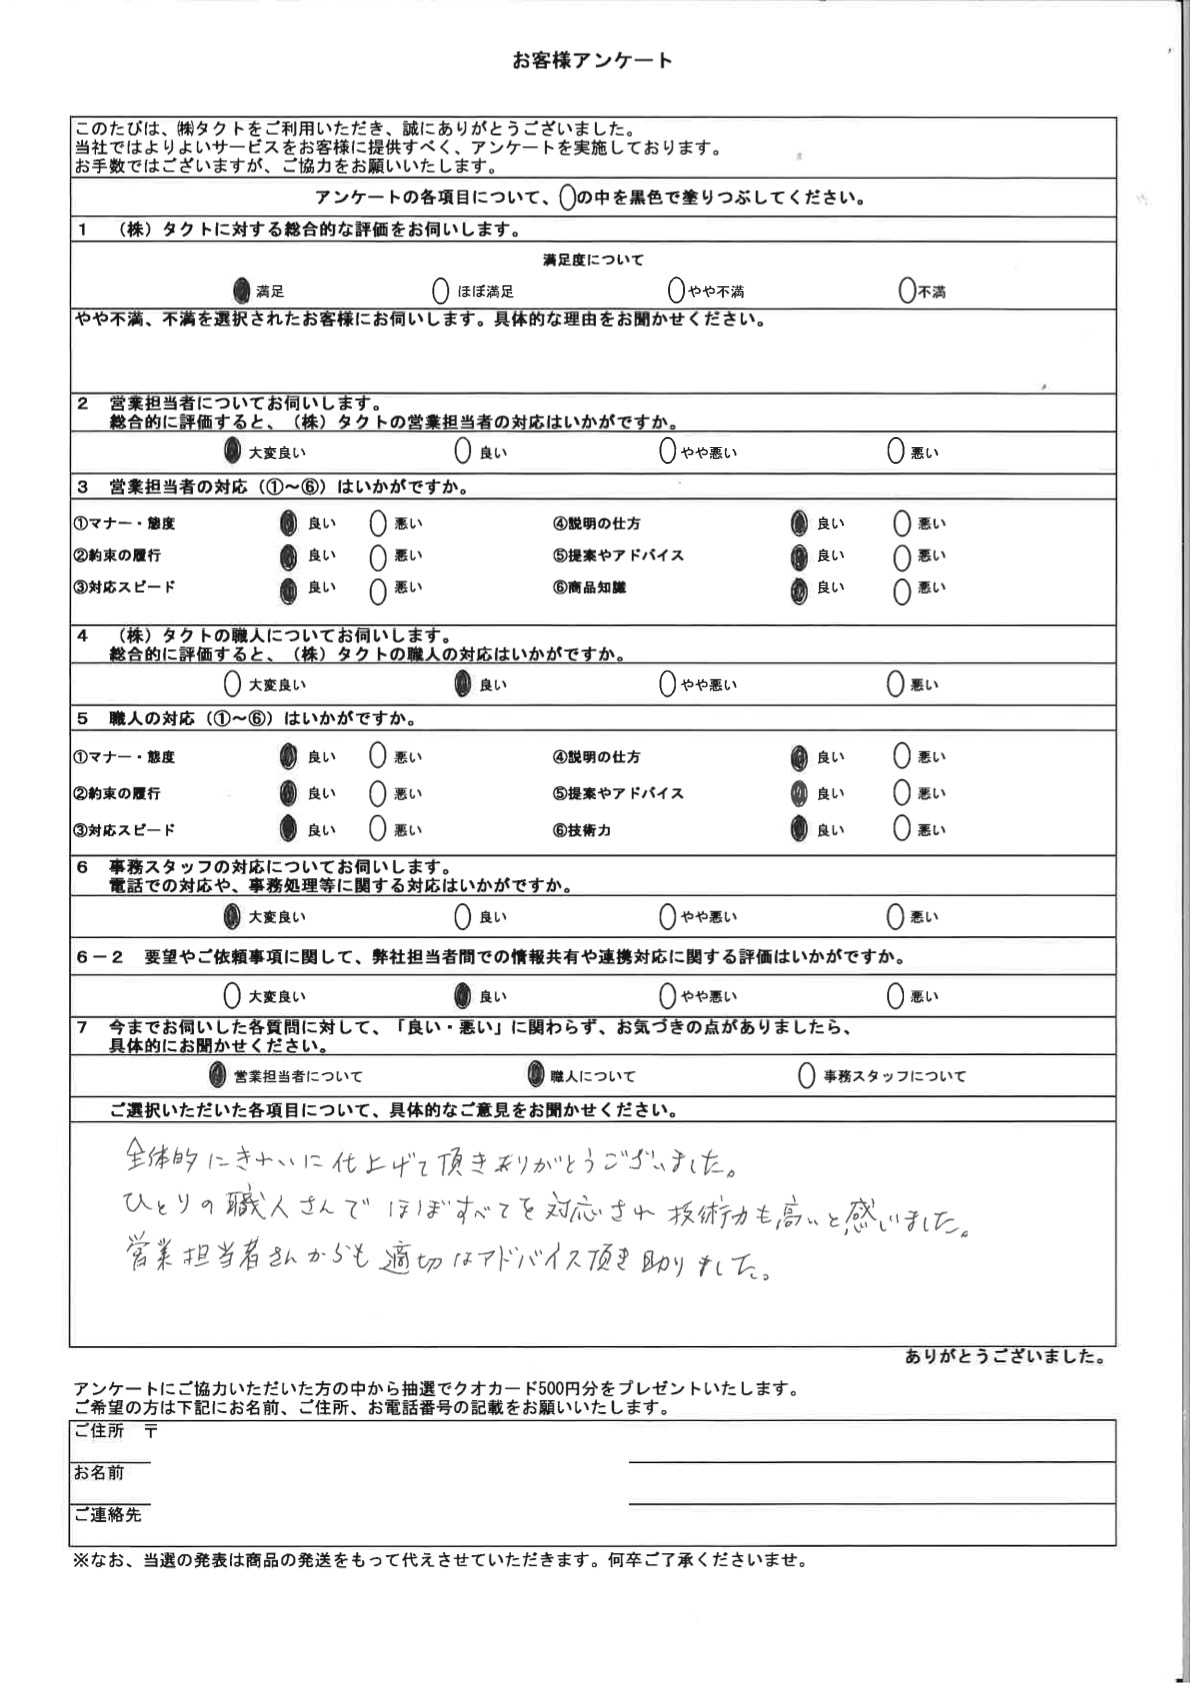 お客様アンケート
このたびは、㈱タクトをご利用いただき、誠にありがとうございました。
当社ではよりよいサービスをお客様に提供すべく、アンケートを実施しております。
お手数ではございますが、ご協力をお願いいたします。
アンケートの各項目について、◯の中を黒色で塗りつぶしてください。
1 （株）タクトに対する総合的な評価をお伺いします。
満足度について
満足 ほぼ満足 やや不満 不満
やや不満、不満を選択されたお客様にお伺いします。具体的な理由をお聞かせください。
2 営業担当者についてお伺いします。
総合的に評価すると、（株）タクトの営業担当者の対応はいかがですか。
大変良い 良い やや悪い 悪い
3 営業担当者の対応（①～⑥）はいかがですか。
①マナー・態度 良い 悪い ④説明の仕方 良い 悪い
②約束の履行 良い 悪い ⑤提案やアドバイス 良い 悪い
③対応スピード 良い 悪い ⑥商品知識 良い 悪い
4 （株）タクトの職人についてお伺いします。
総合的に評価すると、（株）タクトの職人の対応はいかがですか。
大変良い 良い やや悪い 悪い
5 職人の対応（①～⑥）はいかがですか。
①マナー・態度 良い 悪い ④説明の仕方 良い 悪い
②約束の履行 良い 悪い ⑤提案やアドバイス 良い 悪い
③対応スピード 良い 悪い ⑥技術力 良い 悪い
6 事務スタッフの対応についてお伺いします。
電話での対応や、事務処理等に関する対応はいかがですか。
大変良い 良い やや悪い 悪い
6－2 要望やご依頼事項に関して、弊社担当者間での情報共有や連携対応に関する評価はいかがですか。
大変良い 良い やや悪い 悪い
7 今までお伺いした各質問に対して、「良い・悪い」に関わらず、お気づきの点がありましたら、
具体的にお聞かせください。
営業担当者について 職人について 事務スタッフについて
ご選択いただいた各項目について、具体的なご意見をお聞かせください。
全体的にきれいに仕上げて頂きありがとうございました。
ひとりの職人さんでほぼすべてを対応され技術力も高いと感じました。
営業担当者さんからも適切なアドバイス頂き助りました。
ありがとうございました。
アンケートにご協力いただいた方の中から抽選でクオカード500円分をプレゼントいたします。
ご希望の方は下記にお名前、ご住所、お電話番号の記載をお願いいたします。
ご住所 〒
お名前
ご連絡先
※なお、当選の発表は商品の発送をもって代えさせていただきます。何卒ご了承くださいませ。